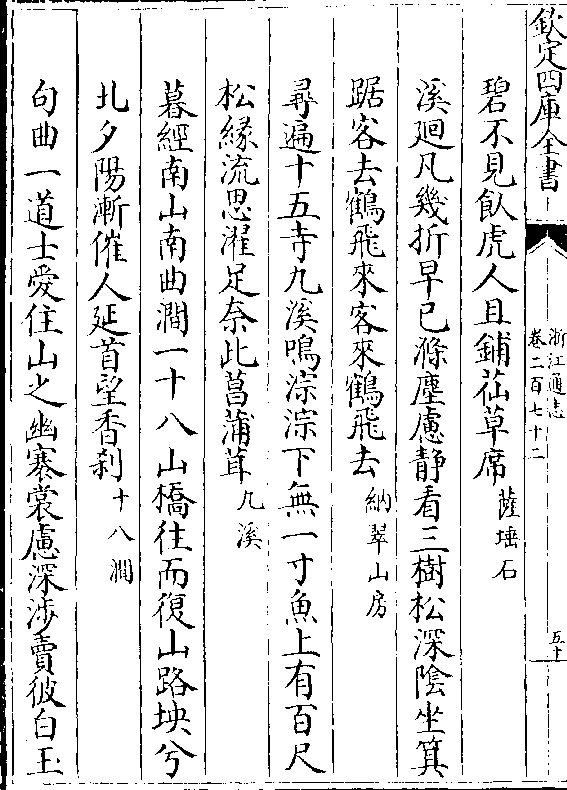 欽定四庫全書
浙江通志
卷二百七十二
五十
碧不見飲虎人且鋪菭草席薩埵石
溪廻凡幾折早已滌塵慮靜看三樹松深陰坐箕
踞客去鶴飛來客來鶴飛去納翠山房
尋遍十五寺九溪鳴淙淙下無一寸魚上有百尺
松緣流思濯足奈此菖蒲茸九溪
暮經南山南曲澗一十八山橋往而復山路坱兮
圠夕陽漸催人延首望香刹十八澗
句曲一道士愛住山之幽褰裳慮深涉賣彼白玉